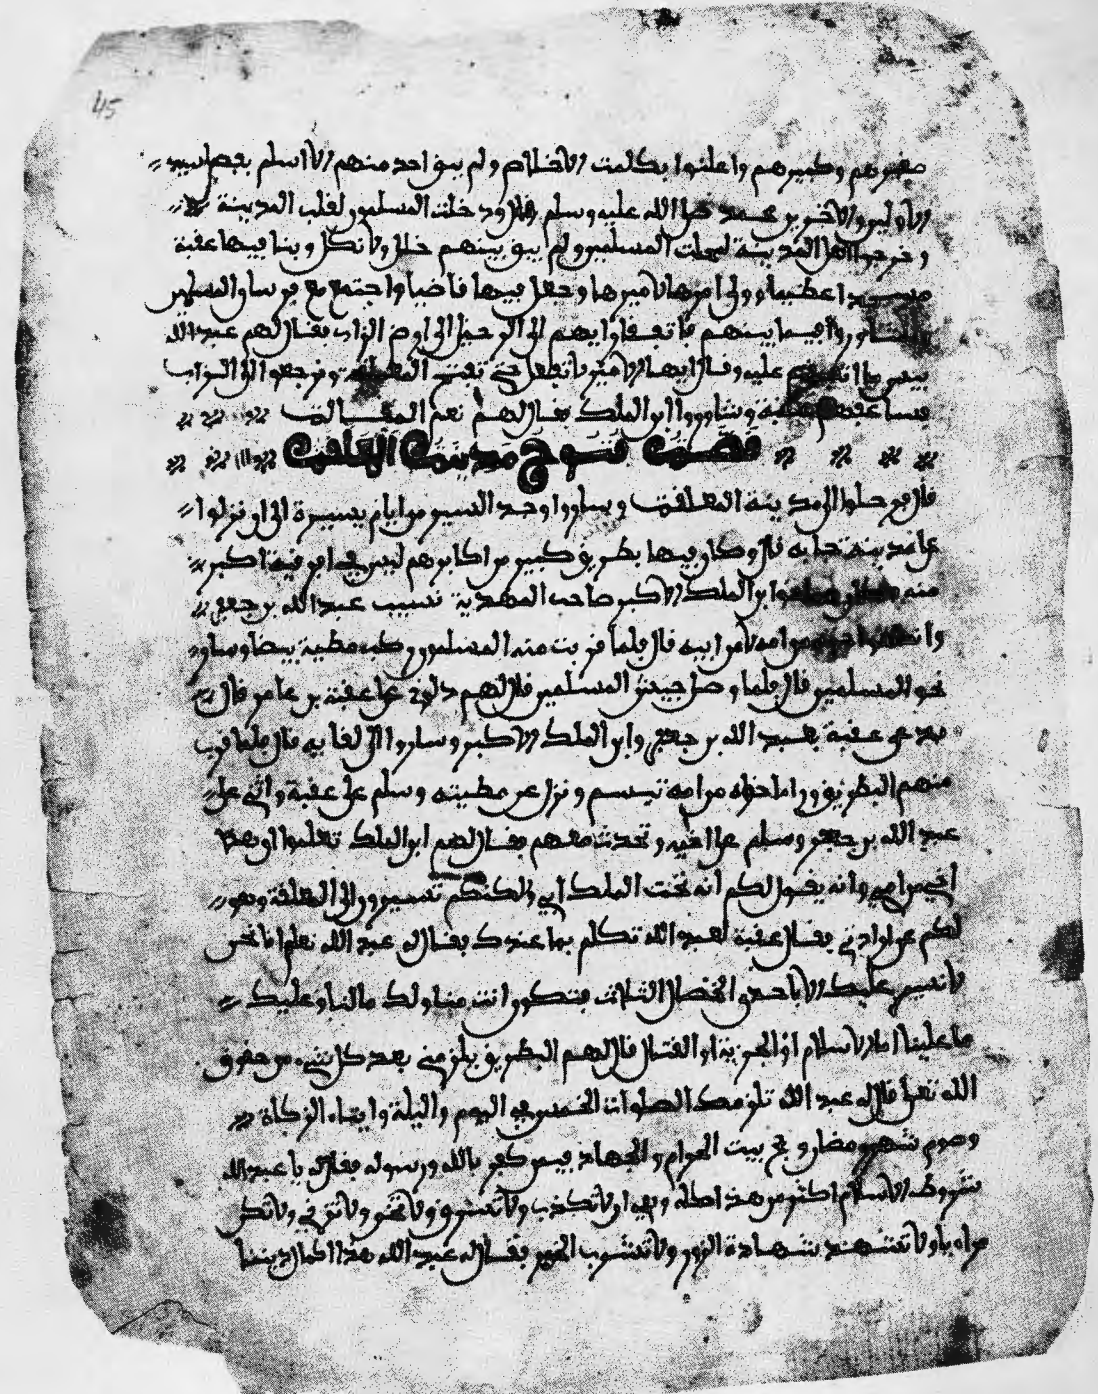 45
صغيرهم وكبيرهم واعلنوا بكلمت الاخلاص ولم يبق احد منهم الا اسلم بفضل سيد
الاولين والاخرين محمد صلى الله عليه وسلم قال ودخلت المسلمون لقلب المدينة
وخرجوا اهل المدينة لمحلت المسلمين ولم يبق بينهم خلل ولا نكل وبنا فيها عقبة
مسجدا عظيما وولى امرها لاميرها وجعل فيها قاضيا واجتمع مع فرسان المسلمين
وتشاوروا فيما بينهم فاتفقا رايهم الى الرحيل الى ارض الزاب فقال لهم عبد الله
بن جعفر عليه وقال ايها الامير ما تفعل حتى تفتح المعلقة ونرجعوا الى الزاب
فساعفهم عقبة وشاوروا ابن الملك فقال لهم نعم المقالت
قصت فتوح مدينت المعلقت
قال فرحلوا الى مدينة المعلقت وساروا وجد السير من ايام يسيرة الى ان نزلوا
على مدينة قال وكان فيها بطريق كبير من اكابرهم ليس في افريقية اكبر
منه ابن الملك الاكبر صاحب المهدية نسيب عبد الله بن جعفر
من امه لا من ابيه قال فلما قربت منه المسلمون ركب مطية بيضا وسار
نحو المسلمين قال فلما وصل جيش المسلمين قال لهم دلوني على عقبة بن عامر قال
فدعى عقبة بعبد الله بن جعفر وابن الملك الاكبر وساروا الى لقايه قال فلما قرب
منهم البطريق وراا اخاه من امه تبسم ونزل عن مطيته وسلم على عقبة واثنى على
عبد الله بن جعفر وسلم على اخيه وتحدث معهم فقال لهم ابن الملك تعلموا ان هذا
اخي من امي وانه يقول لكم انه تحت الملك ابي ولكنكم تسيروا الى المعلقة وهو
لكم عن اولادي فقال عقبة لعبد الله تكلم بما عندك فقال له عبد الله نعلم اننا نحن
لا نسير عليك الا باحدى الخصال الثلاث فتكون انت منا ولك ما لنا وعليك
ما علينا اما الاسلام او الجزية او القتال قال لهم البطريق يلزمني بعد كل شيء من حقوق
الله تعلى قال له عبد الله تلزمك الصلوات الخمس في اليوم والليلة وايتاء الزكاة
وصوم شهر رمضان وحج بيت الحرام والجهاد فيمن كفر بالله ورسوله فقال له يا عبد الله
شروط الاسلام اكثر من هذا كله وهي ان لا تكذب ولا تسرق ولا تخن ولا تزني ولا تكن
مراءيا ولا تشهد شهادة الزور ولا تشرب الخمر فقال له عبد الله هذا كمال ديننا